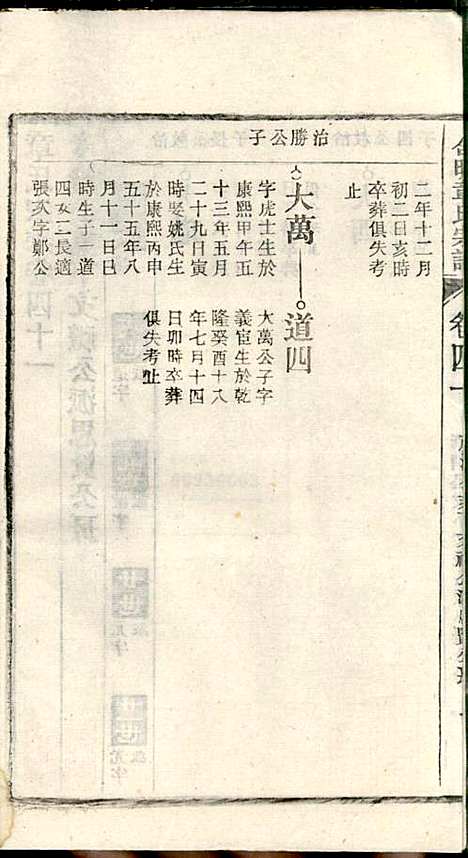 卷四十一
子公勝治
二年十二月
初二日亥時
卒葬俱失考
止
大萬
字虎士生於
康熙甲午五
十三年五月
二十九日寅
時娶姚氏生
於康熙丙申
五十五年八
月十一日巳
時生子一道
四女二長適
張次字鄭公
道四
大萬公子字
義宦生於乾
隆癸酉十八
年七月十四
日卯時卒葬
俱失考止